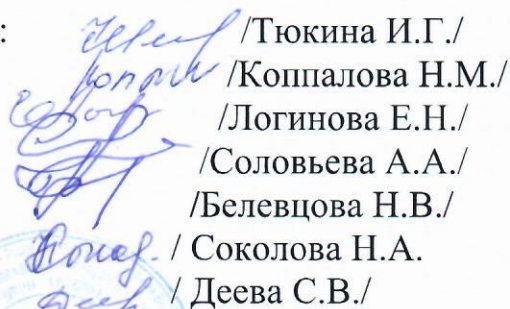 :
/Тюкина И.Г./
/Коппалова Н.М./
/Логинова Е.Н./
/Соловьева А.А./
/Белевцова Н.В./
/ Соколова Н.А.
/ Деева С.В./